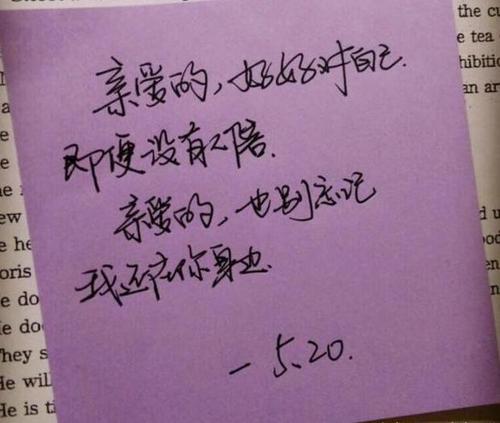 the cu
e tea
hibitio
an ar
亲爱的，好好对自己.
即便没有人陪.
亲爱的，也别忘记
我还在你身边.
- 5.20.
ew
e he
oris
e do
He do
They s
He will
He is t
d u